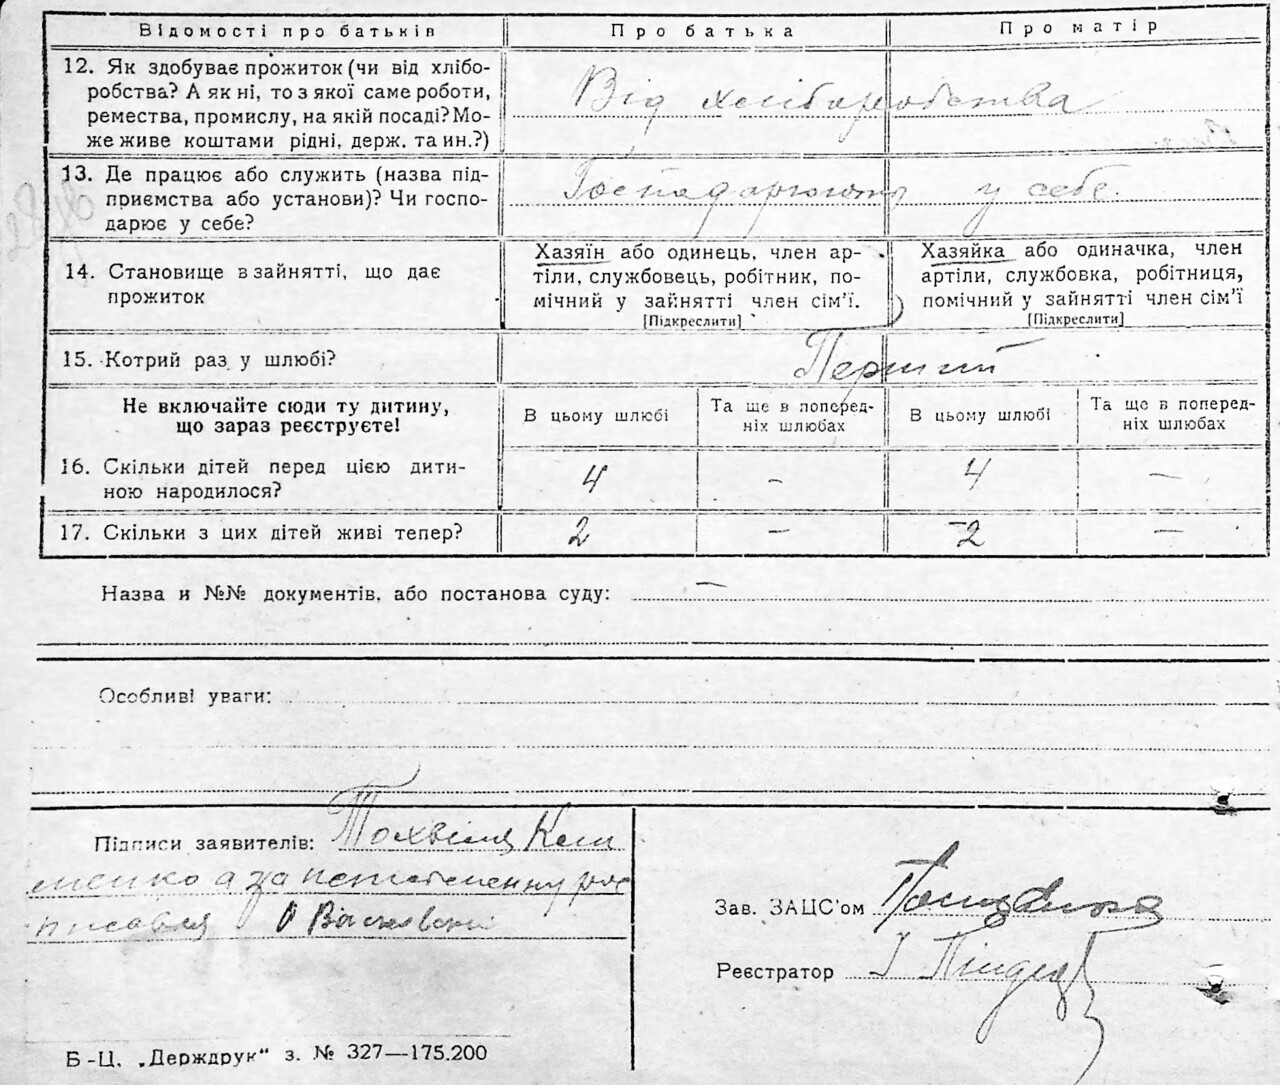 Відомості про батьків
Про батька
Про матір
12. Як здобуває прожиток (чи від хлібо-
робства? А як ні, то з якої саме роботи,
ремества, промислу, на якій посаді? Мо-
же живе коштами рідні, держ. та ин.?)
Від хлібаробства
13. Де працює або служить (назва під-
приємства або установи)? Чи госпо-
дарює у себе?
Господарюють у себе.
14. Становище в зайнятті, що дає
прожиток
Хазяїн або одинець, член ар-
тіли, службовець, робітник, по-
мічний у зайнятті член сім'ї.
[Підкреслити]
Хазяйка або одиначка, член
артіли, службовка, робітниця,
помічний у зайнятті член сім'ї
[Підкреслити]
15. Котрий раз у шлюбі?
Перший
Не включайте сюди ту дитину,
що зараз реєструєте!
В цьому шлюбі
Та ще в поперед-
ніх шлюбах
В цьому шлюбі
Та ще в поперед-
ніх шлюбах
16. Скільки дітей перед цією дити-
ною народилося?
4 - 4 —
17. Скільки з цих дітей живі тепер?
2 — 2 —
Назва и №№ документів, або постанова суду: —
Особливі уваги:
Підписи заявителів:
а за
Зав. ЗАЦС'ом
Реєстратор
Б-Ц. „Держдрук" з. № 327—175.200